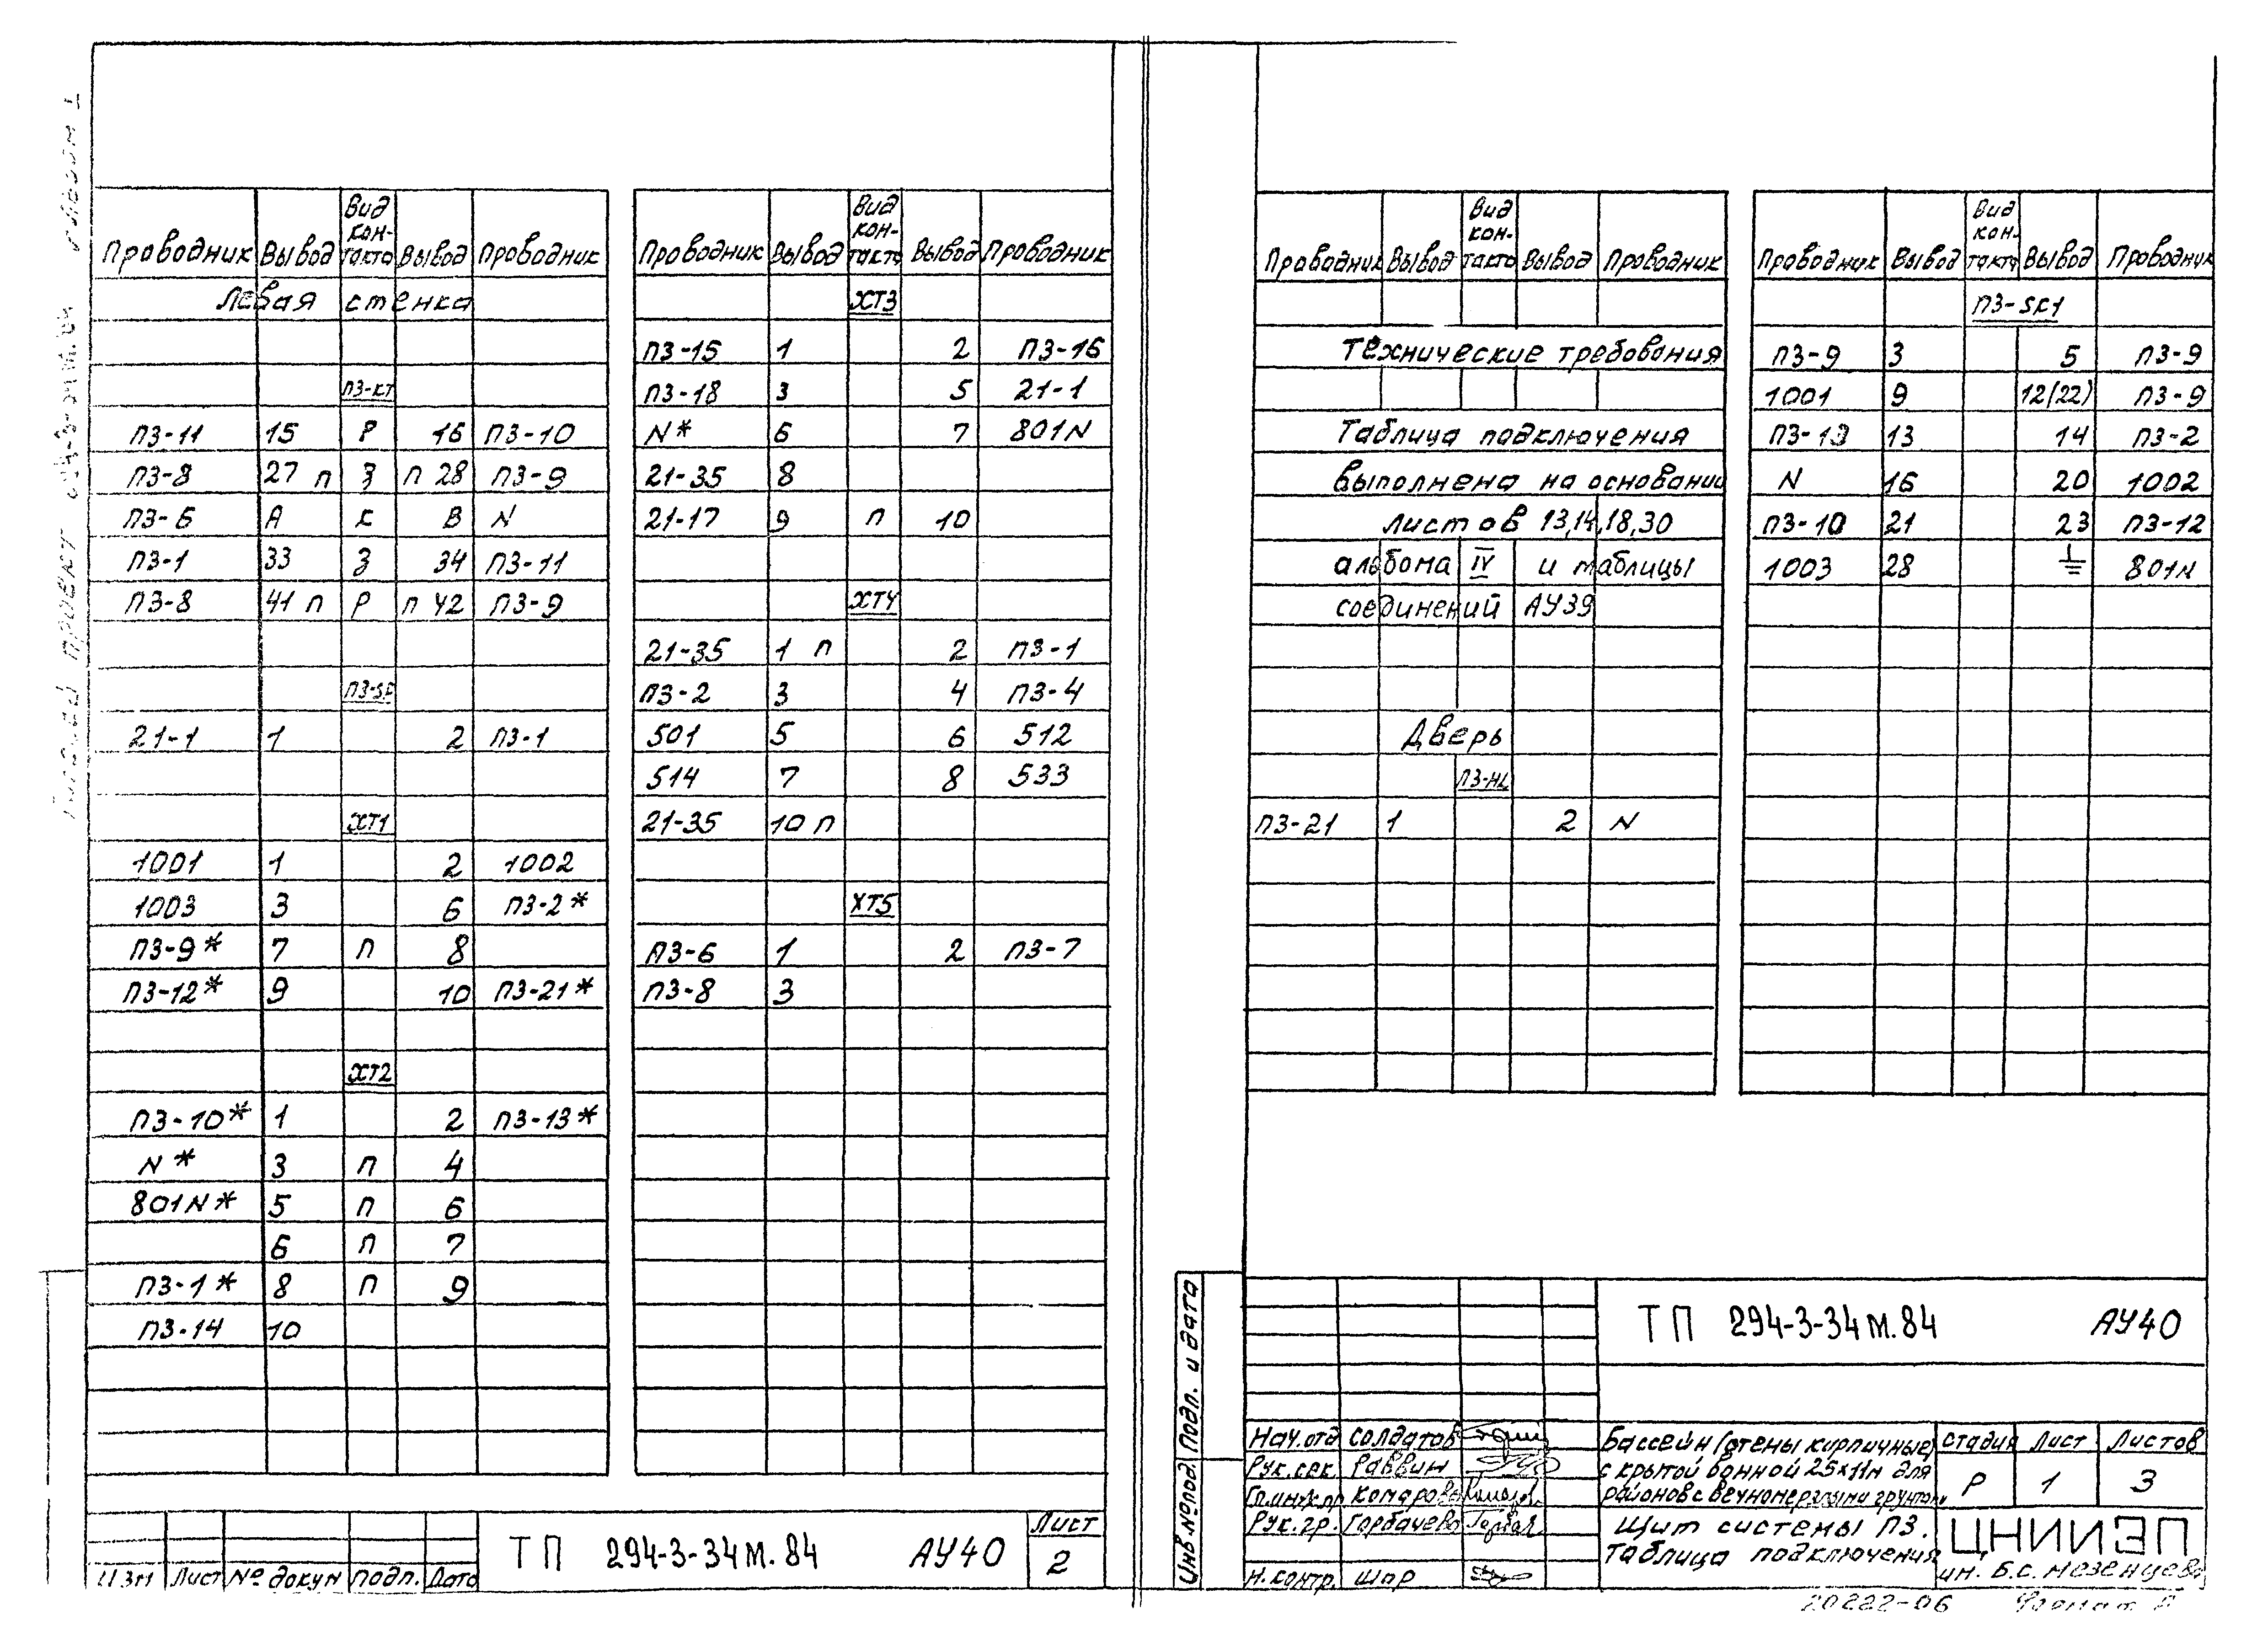 Проводник Вывод Вид кон-такта Вывод Проводник
Левая стенка
П3-КТ
П3-11 15 Р 16 П3-10
П3-8 27 п З п 28 П3-9
П3-6 А К В N
П3-1 33 З 34 П3-11
П3-8 41 п Р п 42 П3-9
П3-SF
21-1 1 2 П3-1
ХТ1
1001 1 2 1002
1003 3 6 П3-2*
П3-9* 7 п 8
П3-12* 9 10 П3-21*
ХТ2
П3-10* 1 2 П3-13*
N* 3 п 4
801N* 5 п 6
6 п 7
П3-1* 8 п 9
П3-14 10
Проводник Вывод Вид кон-такта Вывод Проводник
ХТ3
П3-15 1 2 П3-16
П3-18 3 5 21-1
N* 6 7 801N
21-35 8
21-17 9 п 10
ХТ4
21-35 1 п 2 П3-1
П3-2 3 4 П3-4
501 5 6 512
514 7 8 533
21-35 10 п
ХТ5
П3-6 1 2 П3-7
П3-8 3
Изм Лист № докум подп. Дата
ТП 294-3-34м.84 АУ40
Лист
2
Проводник Вывод Вид кон-такта Вывод Проводник
Технические требования
Таблица подключения
выполнена на основании
листов 13,14,18,30
альбома IV и таблицы
соединений АУ39
Дверь
П3-HL
П3-21 1 2 N
Проводник Вывод Вид кон-такта Вывод Проводник
П3-SF1
П3-9 3 5 П3-9
1001 9 12(22) П3-9
П3-13 13 14 П3-2
N 16 20 1002
П3-10 21 23 П3-12
1003 28 ⏚ 801N
Инв № подл Подп. и дата
ТП 294-3-34м.84 АУ40
Нач. отд Солдатов
Рук. сек. Раввин
Гл.инж.пр Комарова
Рук. гр. Горбачева
Н. контр. Шар
Бассейн (стены кирпичные)
с крытой ванной 25х11м для
районов с вечномерзлыми грунтами
Щит системы П3.
Таблица подключения
стадия Лист Листов
Р 1 3
ЦНИИЭП
им. Б.С. Мезенцева
20222-06 Формат